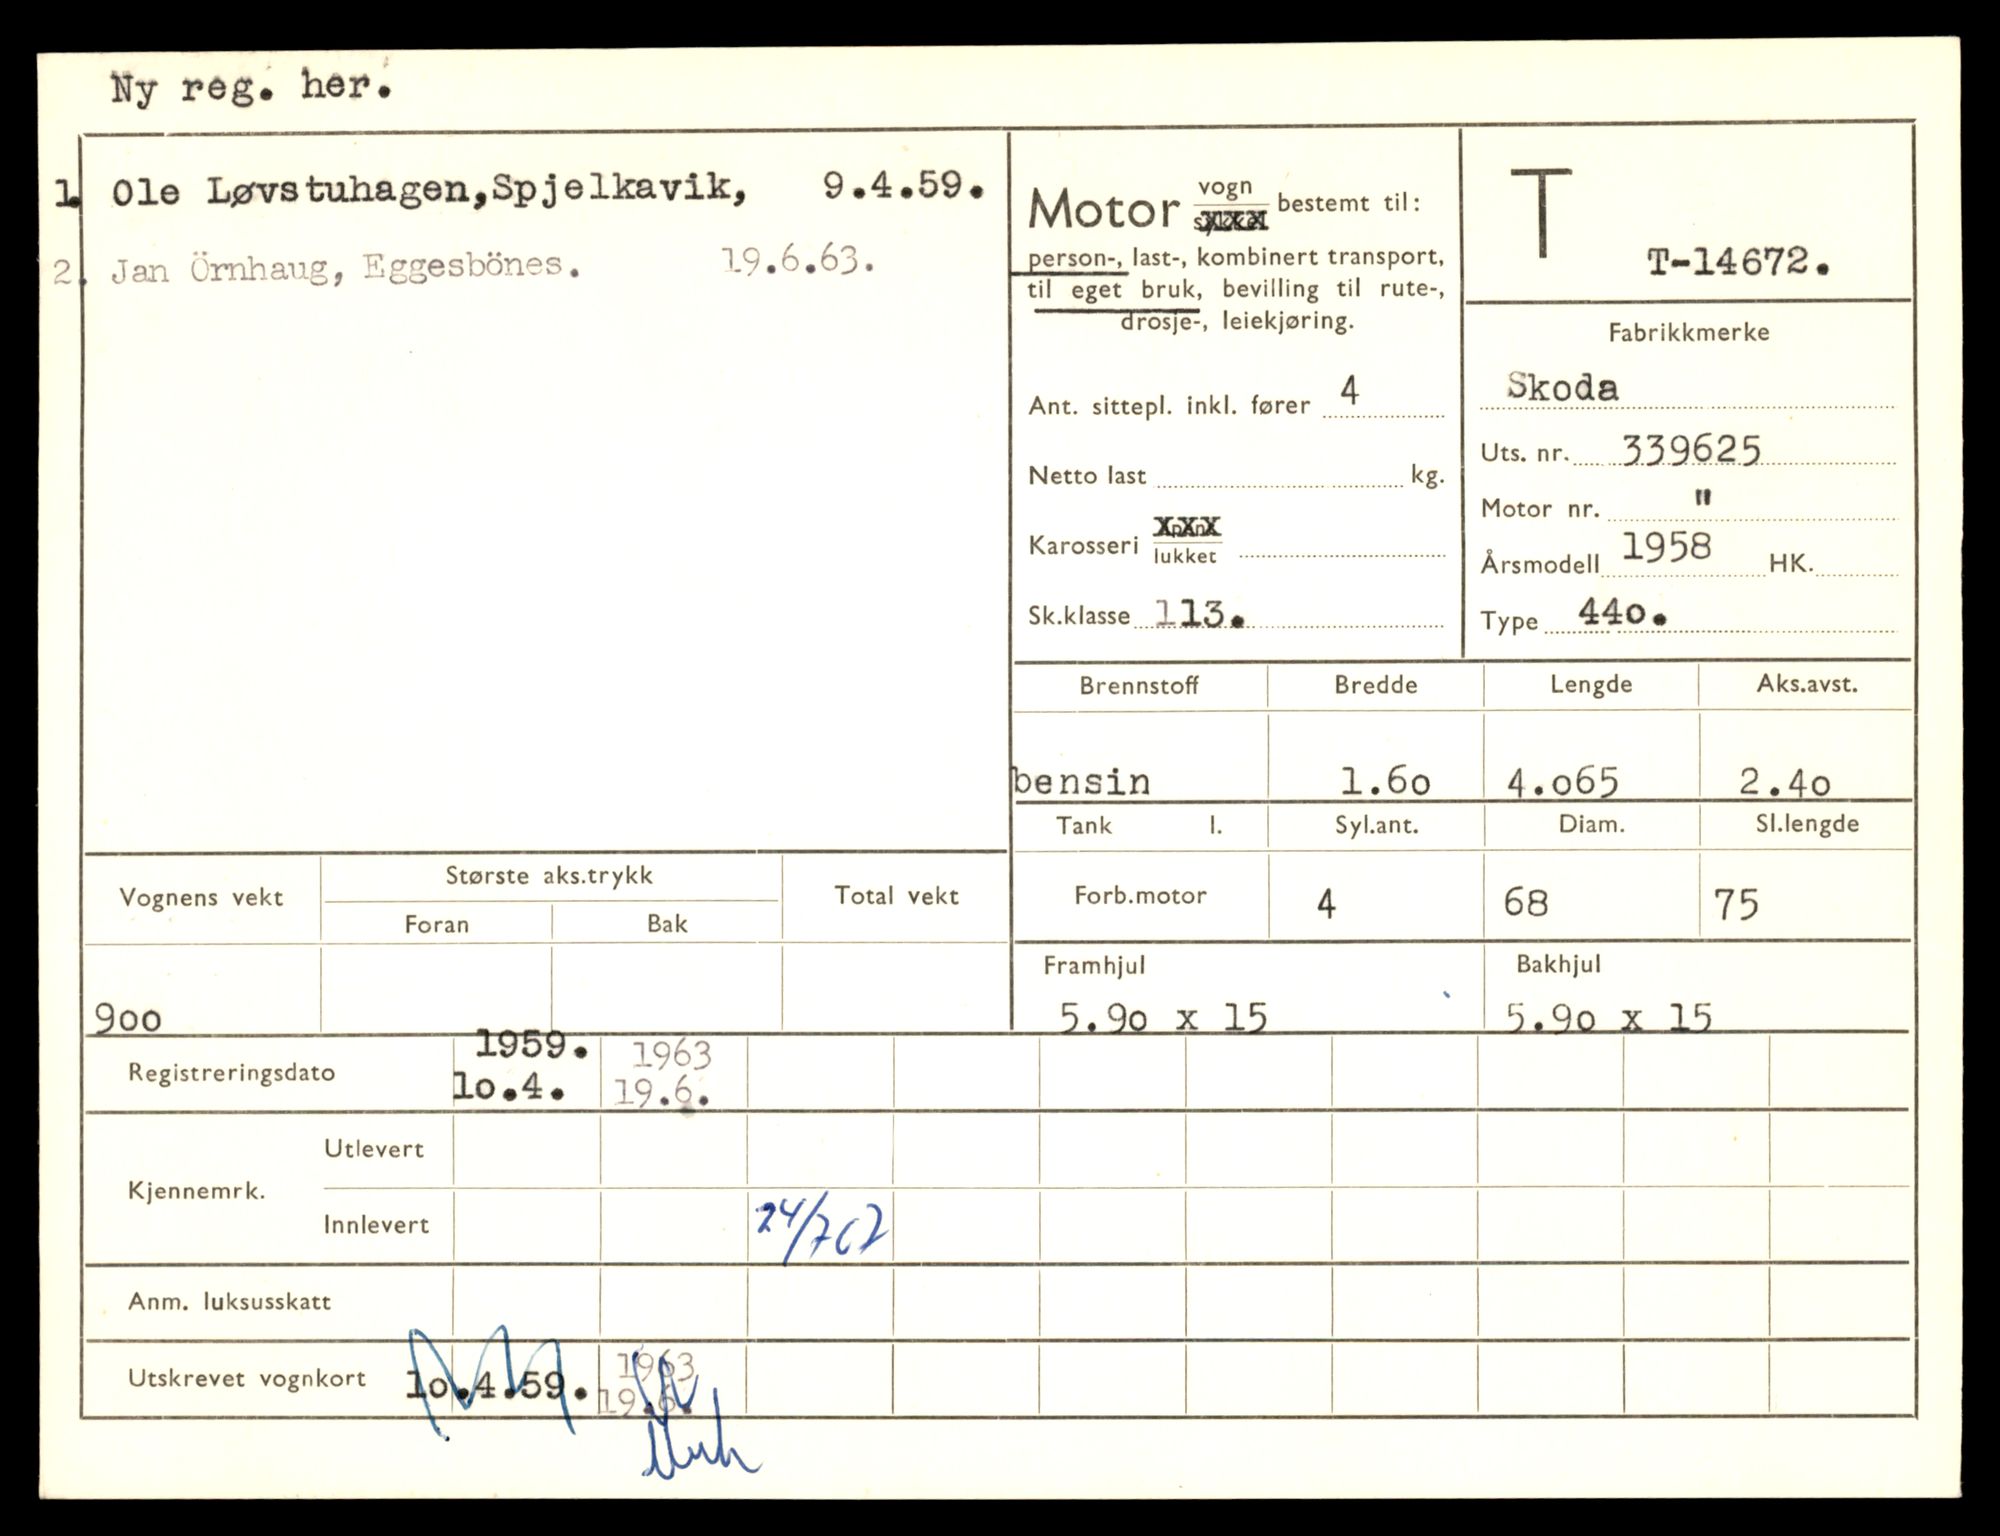 Ny reg. her.
1. Ole Løvstuhagen,Spjelkavik, 9.4.59.
2. Jan Örnhaug, Eggesbönes. 19.6.63.
Motor vogn bestemt til:
person-, last-, kombinert transport,
til eget bruk, bevilling til rute-,
drosje-, leiekjøring.
Ant. sittepl. inkl. fører 4
Netto last kg.
Karosseri lukket
Sk.klasse 113.
T
T-14672.
Fabrikkmerke
Skoda
Uts. nr. 339625
Motor nr. "
Årsmodell 1958 HK.
Type 44o.
Brennstoff Bredde Lengde Aks.avst.
bensin 1.6o 4.o65 2.4o
Tank l. Syl.ant. Diam. Sl.lengde
Forb.motor 4 68 75
Framhjul Bakhjul
5.9o x 15 5.9o x 15
Vognens vekt Største aks.trykk Total vekt
Foran Bak
9oo
Registreringsdato 1959. 1963
1o.4. 19.6.
Kjennemrk. Utlevert
Innlevert 24/7 67
Anm. luksusskatt
Utskrevet vognkort 1o.4.59. 1963
19.6.